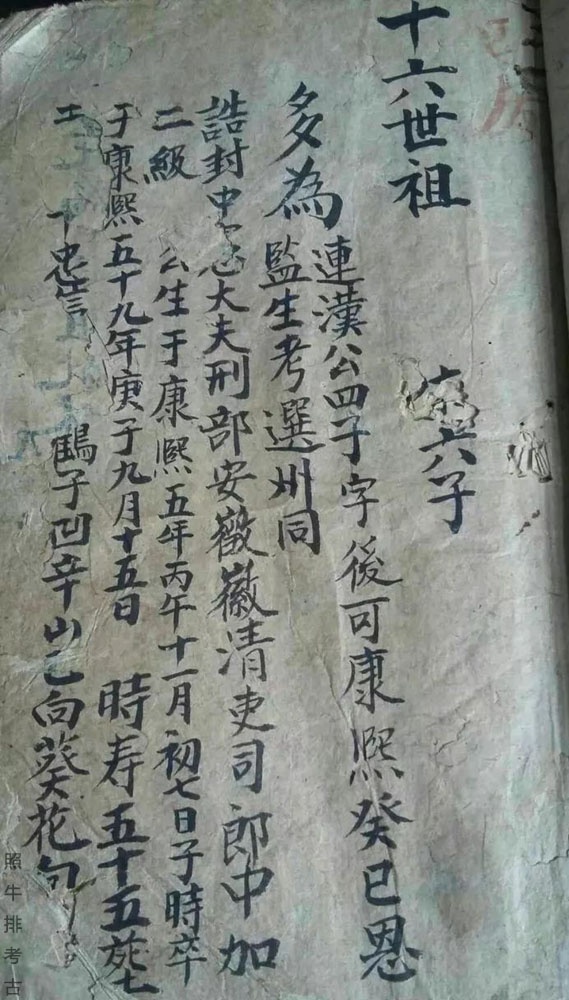 十六世祖
六子
多為
連漢公四子字後可康熙癸巳恩
監生考選州同
誥封中憲大夫刑部安徽徽清吏司郎中加
二級 公生于康熙五年丙午十一月初七日子時卒
于康熙五十九年庚子九月十五日 時寿五十五於七
工 子凹辛山乙向葵花
照牛排考古